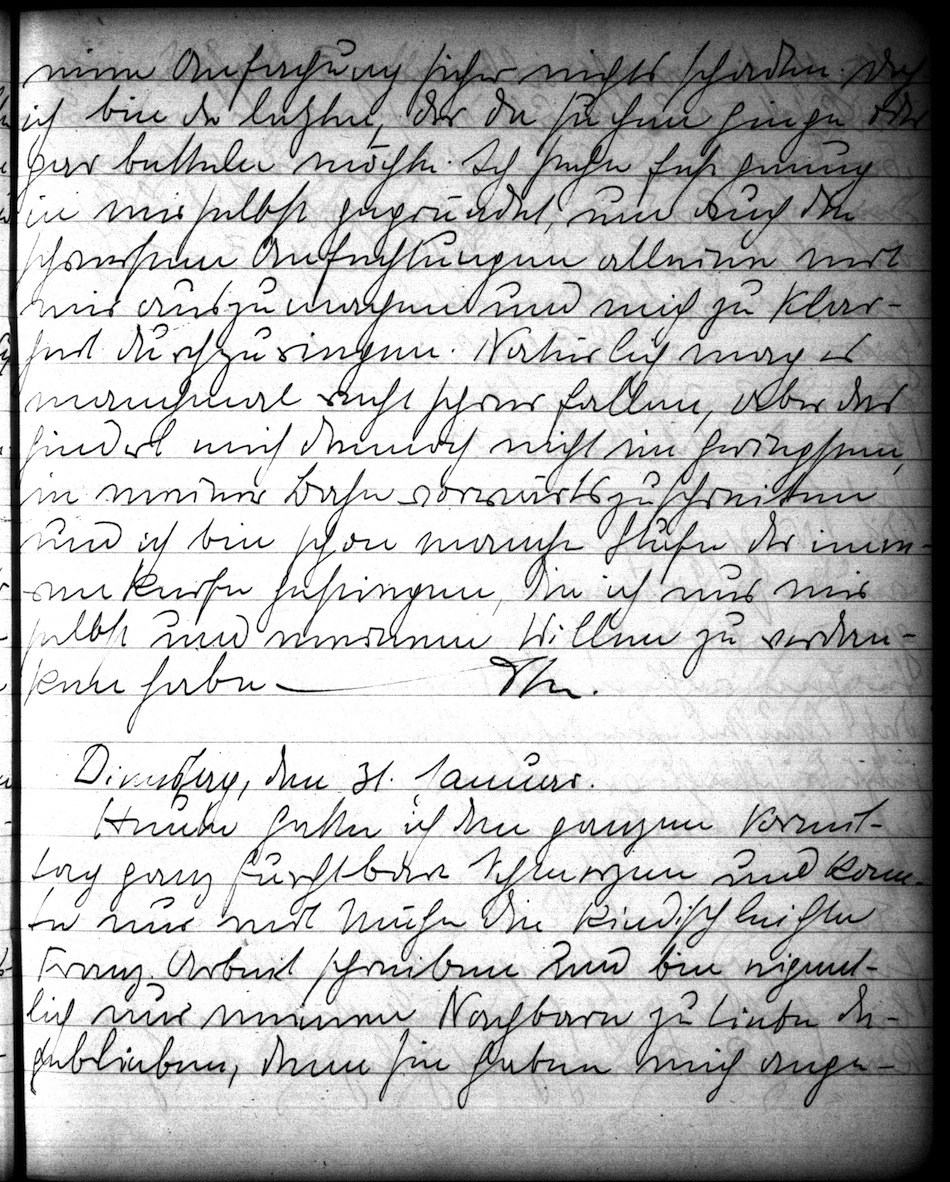 meine Anfechtung sicher nichts schaden. Doch
ich bin der letzte, der da suchen ginge oder
gar betteln möchte. Ich stehe fest genug
in mir selbst gegründet, um auch die
schwersten Anfechtungen alleine mit
mir auszumachen und mich zu Klar-
heit durchzuringen. Natürlich mag es
manchmal recht schwer fallen, aber das
hindert mich dennoch nicht im Geringsten,
in meiner Bahn vorwärtszuschreiten
und ich bin schon manche Stufe der inne-
ren Reife gestiegen, die ich nur mir
selbst und meinem Willen zu verdan-
ken habe.
Dienstag, den 31. Januar.
Heute hatte ich den ganzen Vormit-
tag ganz furchtbare Schmerzen und konn-
te nur mit Mühe die kindisch leichte
Franz. Arbeit schreiben und bin eigent-
lich nur meinen Nachbarn zu Liebe da-
geblieben, denn sie haben mich ange-